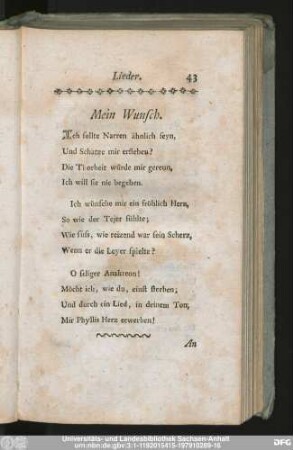 Lieder. 43
Mein Wunsch.
Ich sollte Narren ähnlich seyn,
Und Schätze mir erflehen?
Die Thorheit würde mir gereun,
Ich will sie nie begehen.
Ich wünsche mir ein fröhlich Herz,
So wie der Tejer fühlte;
Wie süß, wie reizend war sein Scherz,
Wenn er die Leyer spielte?
O seliger Anakreon!
Möcht ich, wie du, einst sterben;
Und durch ein Lied, in deinem Ton,
Mir Phyllis Herz erwerben!
An
Universitäts- und Landesbibliothek Sachsen-Anhalt
urn:nbn:de:gbv:3:1-1192015415-197910269-16
DFG